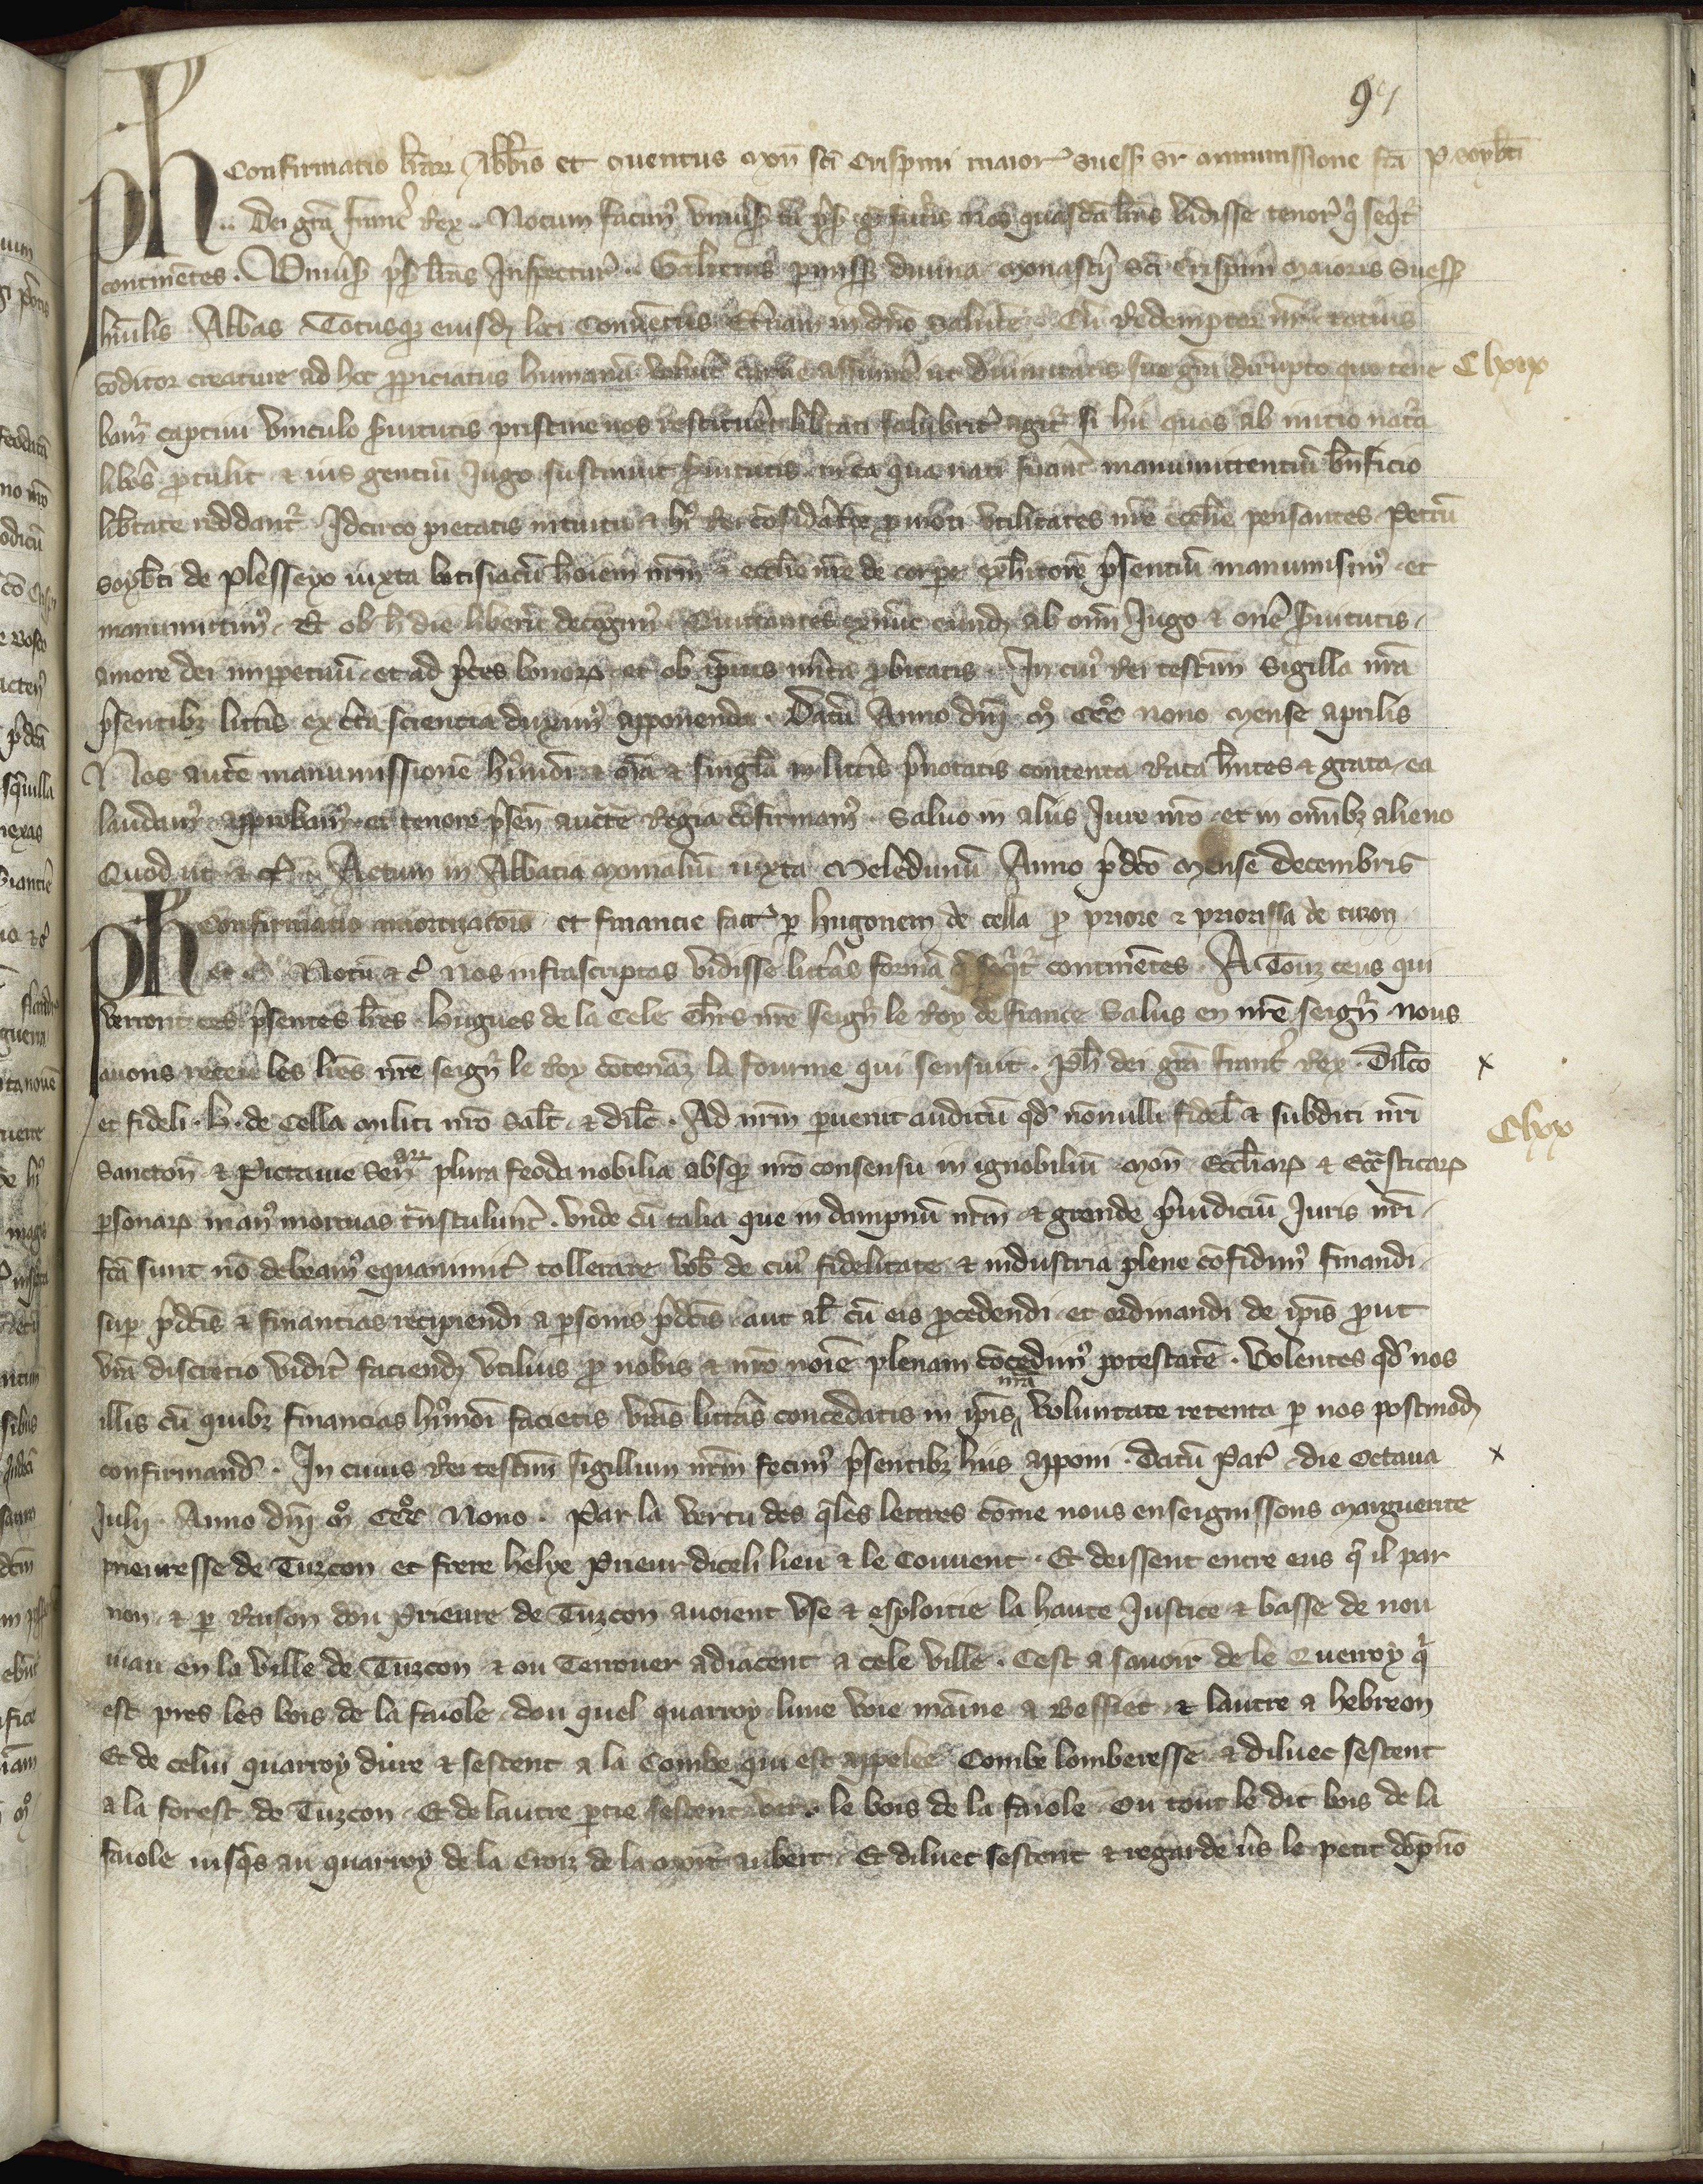 94
Confirmatio lrar Abbis et cventus mon sci Crispini maior suess sr manumissione fca P. soybti
Ph .. Dei gra Franc Rex. Notum facim univs tam pns q futis nos quasda lras vidisse tenore q seqt
continetes. Univs pns lras Inspectur. Galterus pmiss divina Monastii sci Crispini maioris Suess
humlis Abbas Totusq eiusd loci Conventus Etnam in dno salute. Cu Redemptor nr totius
Clxix
coditor creature ad hoc ppiciatus humana voluit carne assume ut divinitatis sue gra dirupto quo tene
bam captivi vinculo svitutis pristine nos restituet libtati salubrit agit si hii quos ab inicio natra
libos ptulit & ius gentiu Jugo sustinuit svitutis in ea qua nati fuant manumittentiu bnficio
libtate reddant. Idcirco pietatis intuitu & hi Rei cosidatoe pmoti utilitates nre ecclie pensantes Petru
soybti de Plesseyo iuxta betisiacu hoiem nrm & ecclie nre de corpe exhitore psentiu manumisim et
manumittim. Et ob h die liberu decgnim Quittantes exnuc eund ab omi Jugo & one svitutis
amore dei impetuu et ad pces bonor et ob ipius mita pbitatis. In cui Rei testim Sigilla nra
psentibz littis ex cta scientia duxim apponenda. Datu Anno dni Mo CCCo nono mense aprilis
Nos aute manumissione himoi & oia & singla in littis pnotatis contenta Rata hntes & grata ea
laudam approbam et tenore psen aucte Regia cofirmam. Salvo in aliis Jure nro et in omibz alieno
Quod ut & c. Actum in Abbatia Monialiu iuxta Meledunu Anno pdco Mense Decembris
Confirmatio amortizacois et financie fact p hugonem de cella p priore & priorissa de tuzon
Ph et c. Notu & c nos infrascriptas vidisse littas forma q seqt continetes. A Touz ceus qui
verront ces psentes lres Hugues de la Cele Chrs nre seign le Roy de france Salus en nre seign. Nous
avons receu les lres nre seign le Roy cotenaz la fourme qui sensuit. Ph dei gra Franc Rex. Dilco x
et fideli. h. de Cella militi nro salt & dilc. Ad nrm pvenit auditu qd nonulli fidel & subditi nri
Clxx
Sancton & Pictavie Senarr plura feoda nobilia absq nro consensu in ignobiliu Mon Eccliar & Eccsticar
psonar man mortuas tnstulunt. Unde cu talia que in dampnu nrm & grande piudiciu Juris nri
fca sunt no debeam equanimit tollerare vob de cui fidelitate & industria plene cofidim finandi
sup pdcis & financias recipiendi a psonis pdcis aut al cu eis pcedendi et ordinandi de ipis put
vra discretio vidit faciend utilius p nobis & nro noie plenam cocedim potestate. Volentes qd nos
illis cu quibz financias himoi facietis vras littas concedatis in ipis nra voluntate retenta p nos postmod
confirmand. In cuius Rei testim sigillum nrm fecim psentibz hiis apponi. Datu Par die Octava x
Julii. Anno dni Mo CCCo Nono. Par la vertu des qles lettres come nous enseignissons Marguerite
prieuresse de Tuzcon et frere helye Prieur diceli lieu & le Couvent. Et deissent entre eus q il par
non & p Raison dou Prieure de Tuzcon avoient use & esploitie la haute Justice & basse de nou
viau en la ville de Tuzcon & ou Terrouer adiacent a cele ville. Cest a savoir de le Querroy q
est pres les bois de la faiole dou quel quarroy lune voie maine a Bessiet & lautre a hebreon
Et de celui quarroy dure & sestent a la Combe qui est appelee Combe lomberesse & diluec sestent
a la forest de Tuzcon. Et de lautre ptie sestent vers le bois de la faiole ou tout le dit bois de la
faiole iusqs au quarroy de la Croiz de la mort aubert. Et diluec sestent & regarde vs le petit dopno